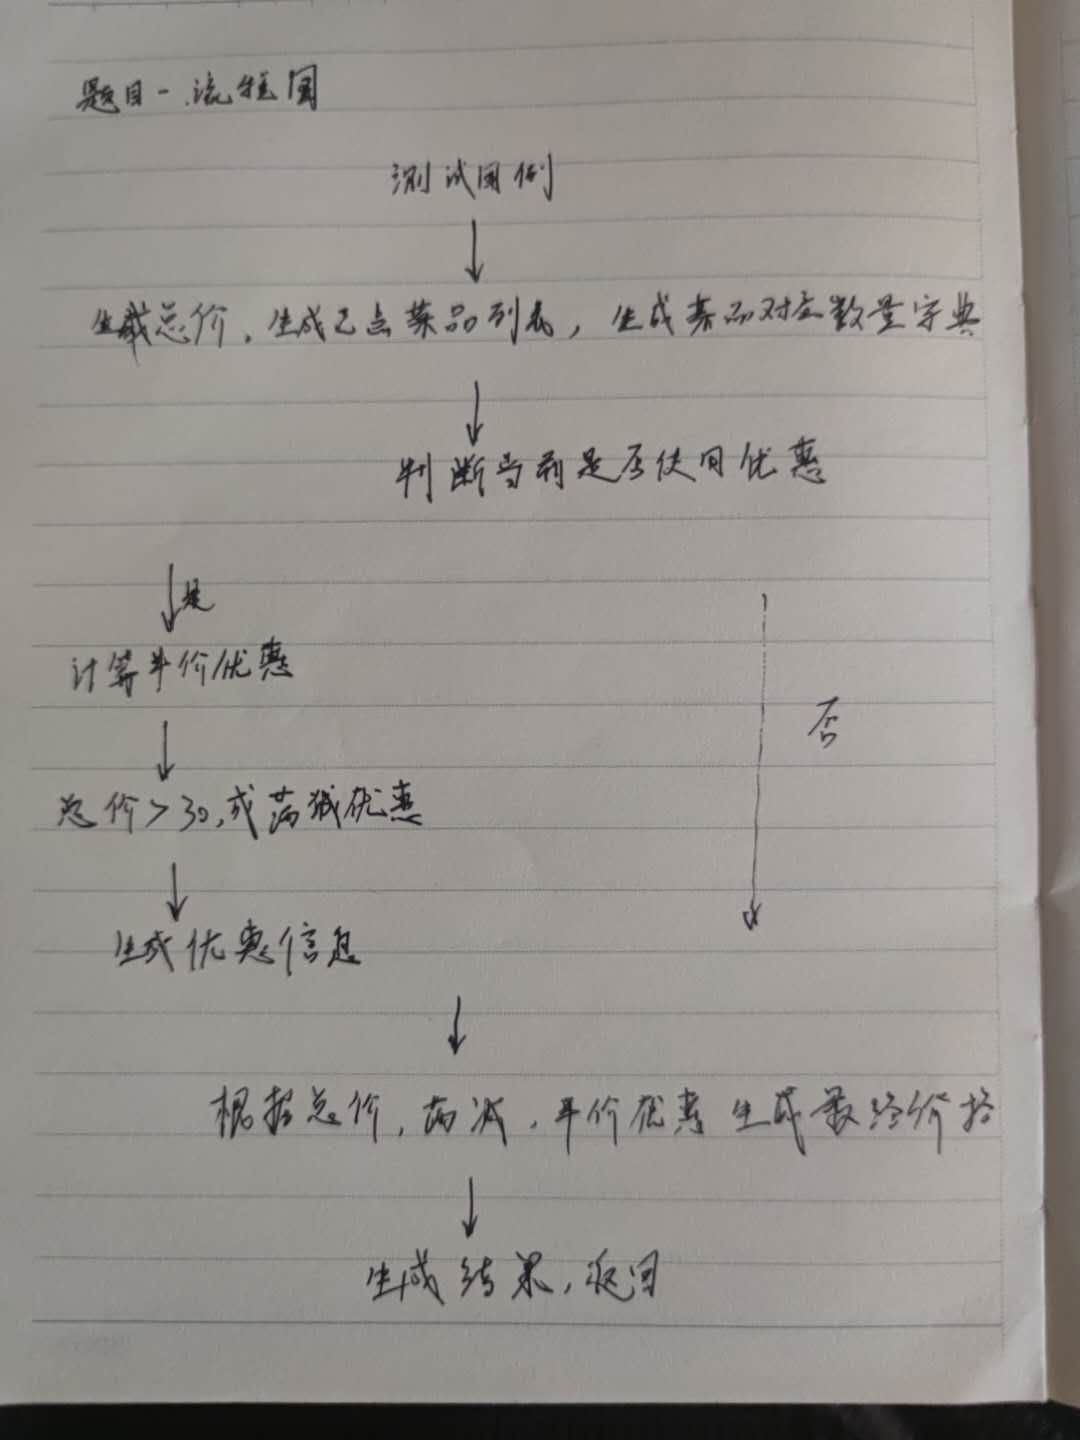 题目一流程图
测试用例
生成总价,生成已点菜品列表,生成菜品对应数量字典
判断当前是否使用优惠
是
计算半价优惠
否
总价>30,或满减优惠
生成优惠信息
根据总价,满减,半价优惠生成最终价格
生成结果,返回